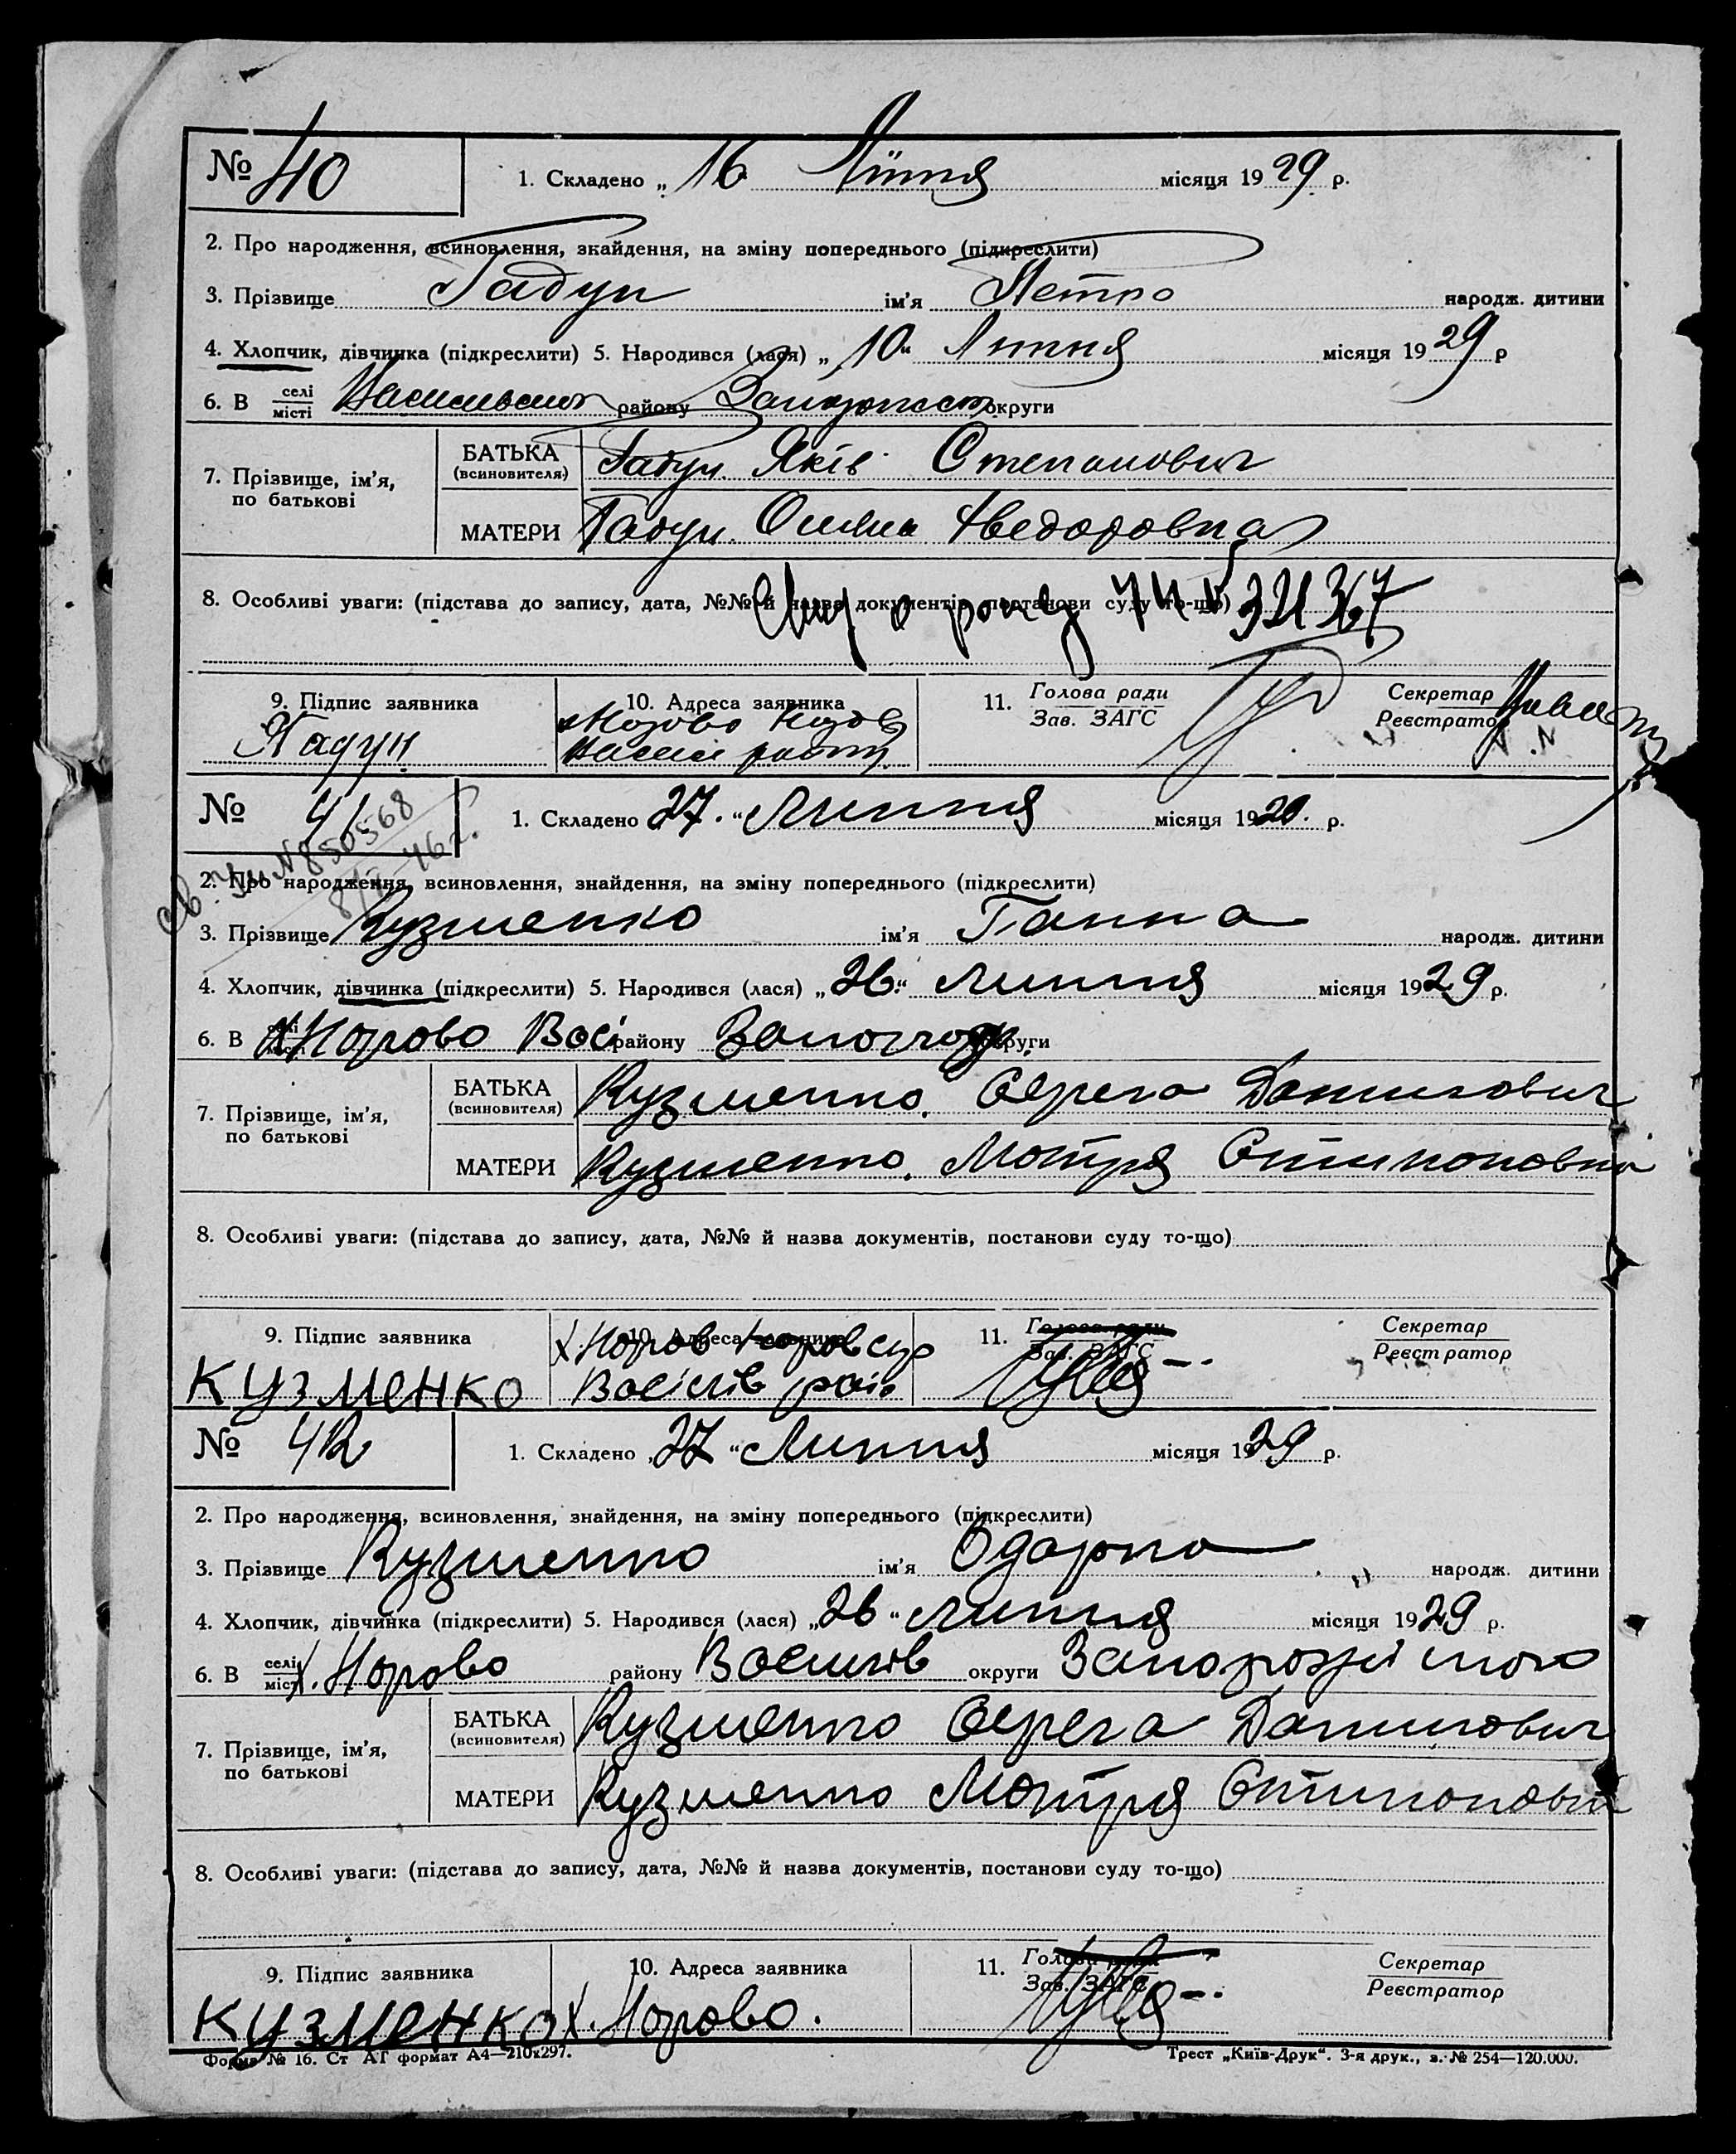 № 40
1. Складено „ 16 Липня місяця 1929 р.
2. Про народження, всиновлення, знайдення, на зміну попереднього (підкреслити)
3. Прізвище Гадун ім’я Петро народж. дитини
4. Хлопчик, дівчинка (підкреслити) 5. Народився (лася) „ 10 “ Липня місяця 1929 р
6. В селі місті району округи
7. Прізвище, ім’я, по батькові
БАТЬКА (всиновителя) Гадун Яків Степанович
МАТЕРИ Гадун Федоровна
8. Особливі уваги: (підстава до запису, дата, №№ й назва документів, постанови суду то-що)
9. Підпис заявника
10. Адреса заявника
11. Голова ради Зав. ЗАГС
Секретар Реєстратор
Гадун
№ 41
1. Складено 27. “ Липня місяця 1929. р.
св. № 850568
2. Про народження, всиновлення, знайдення, на зміну попереднього (підкреслити)
3. Прізвище Кузменко ім’я Ганна народж. дитини
4. Хлопчик, дівчинка (підкреслити) 5. Народився (лася) „ 26 “ Липня місяця 1929 р.
6. В селі місті району округи
7. Прізвище, ім’я, по батькові
БАТЬКА (всиновителя) Кузменко. Серега Данилович
МАТЕРИ Кузменко. Мотря
8. Особливі уваги: (підстава до запису, дата, №№ й назва документів, постанови суду то-що)
9. Підпис заявника
10. Адреса заявника
11. Голова ради Зав. ЗАГС
Секретар Реєстратор
КУЗМЕНКО
№ 42
1. Складено „ 27 “ Липня місяця 1929 р.
2. Про народження, всиновлення, знайдення, на зміну попереднього (підкреслити)
3. Прізвище Кузменко ім’я Одарка народж. дитини
4. Хлопчик, дівчинка (підкреслити) 5. Народився (лася) „ 26 “ Липня місяця 1929 р.
6. В селі місті району Васильків округи
7. Прізвище, ім’я, по батькові
БАТЬКА (всиновителя) Кузменко Серега Данилович
МАТЕРИ Кузменко Мотря
8. Особливі уваги: (підстава до запису, дата, №№ й назва документів, постанови суду то-що)
9. Підпис заявника
10. Адреса заявника
11. Голова ради Зав. ЗАГС
Секретар Реєстратор
КУЗМЕНКО
Форма № 16. Ст АТ формат А4—210х297.
Трест „Київ-Друк“. 3-я друк., з. № 254—120.000.